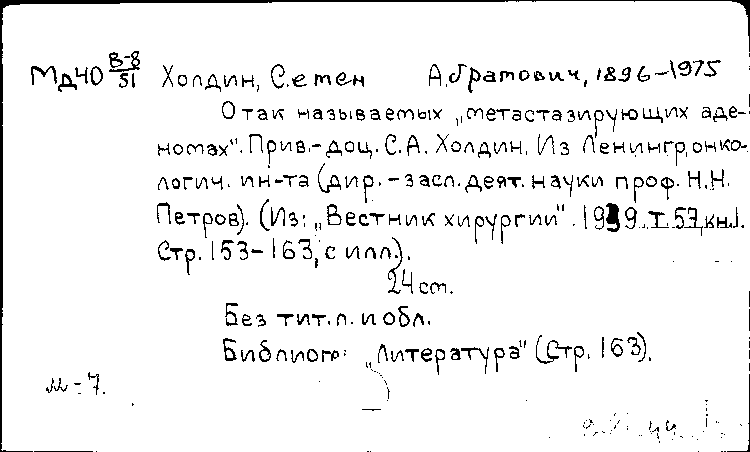 Мд40 В-8/51 Холдин, Семен А.братович, 1896-1975
О так называемых „метастазирующих аде-
номах". Прив.-доц. С.А. Холдин. Из Ленингр. онко-
логич. ин-та (дир. - засл. деят. науки проф. Н.Н.
Петров). (Из: „Вестник хирургии". 1939. Т. 57, кн. 1.
Стр. 153-163, с илл.).
24 cm.
Без тит. л. и обл.
Библиогр: „Литература" (Стр. 163).
м-7.